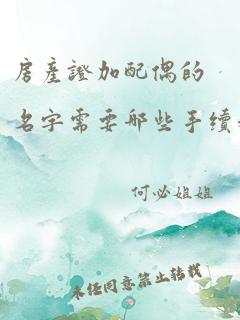 房產證加配偶的
名字需要哪些手續
何必姐姐
未经同意禁止转载